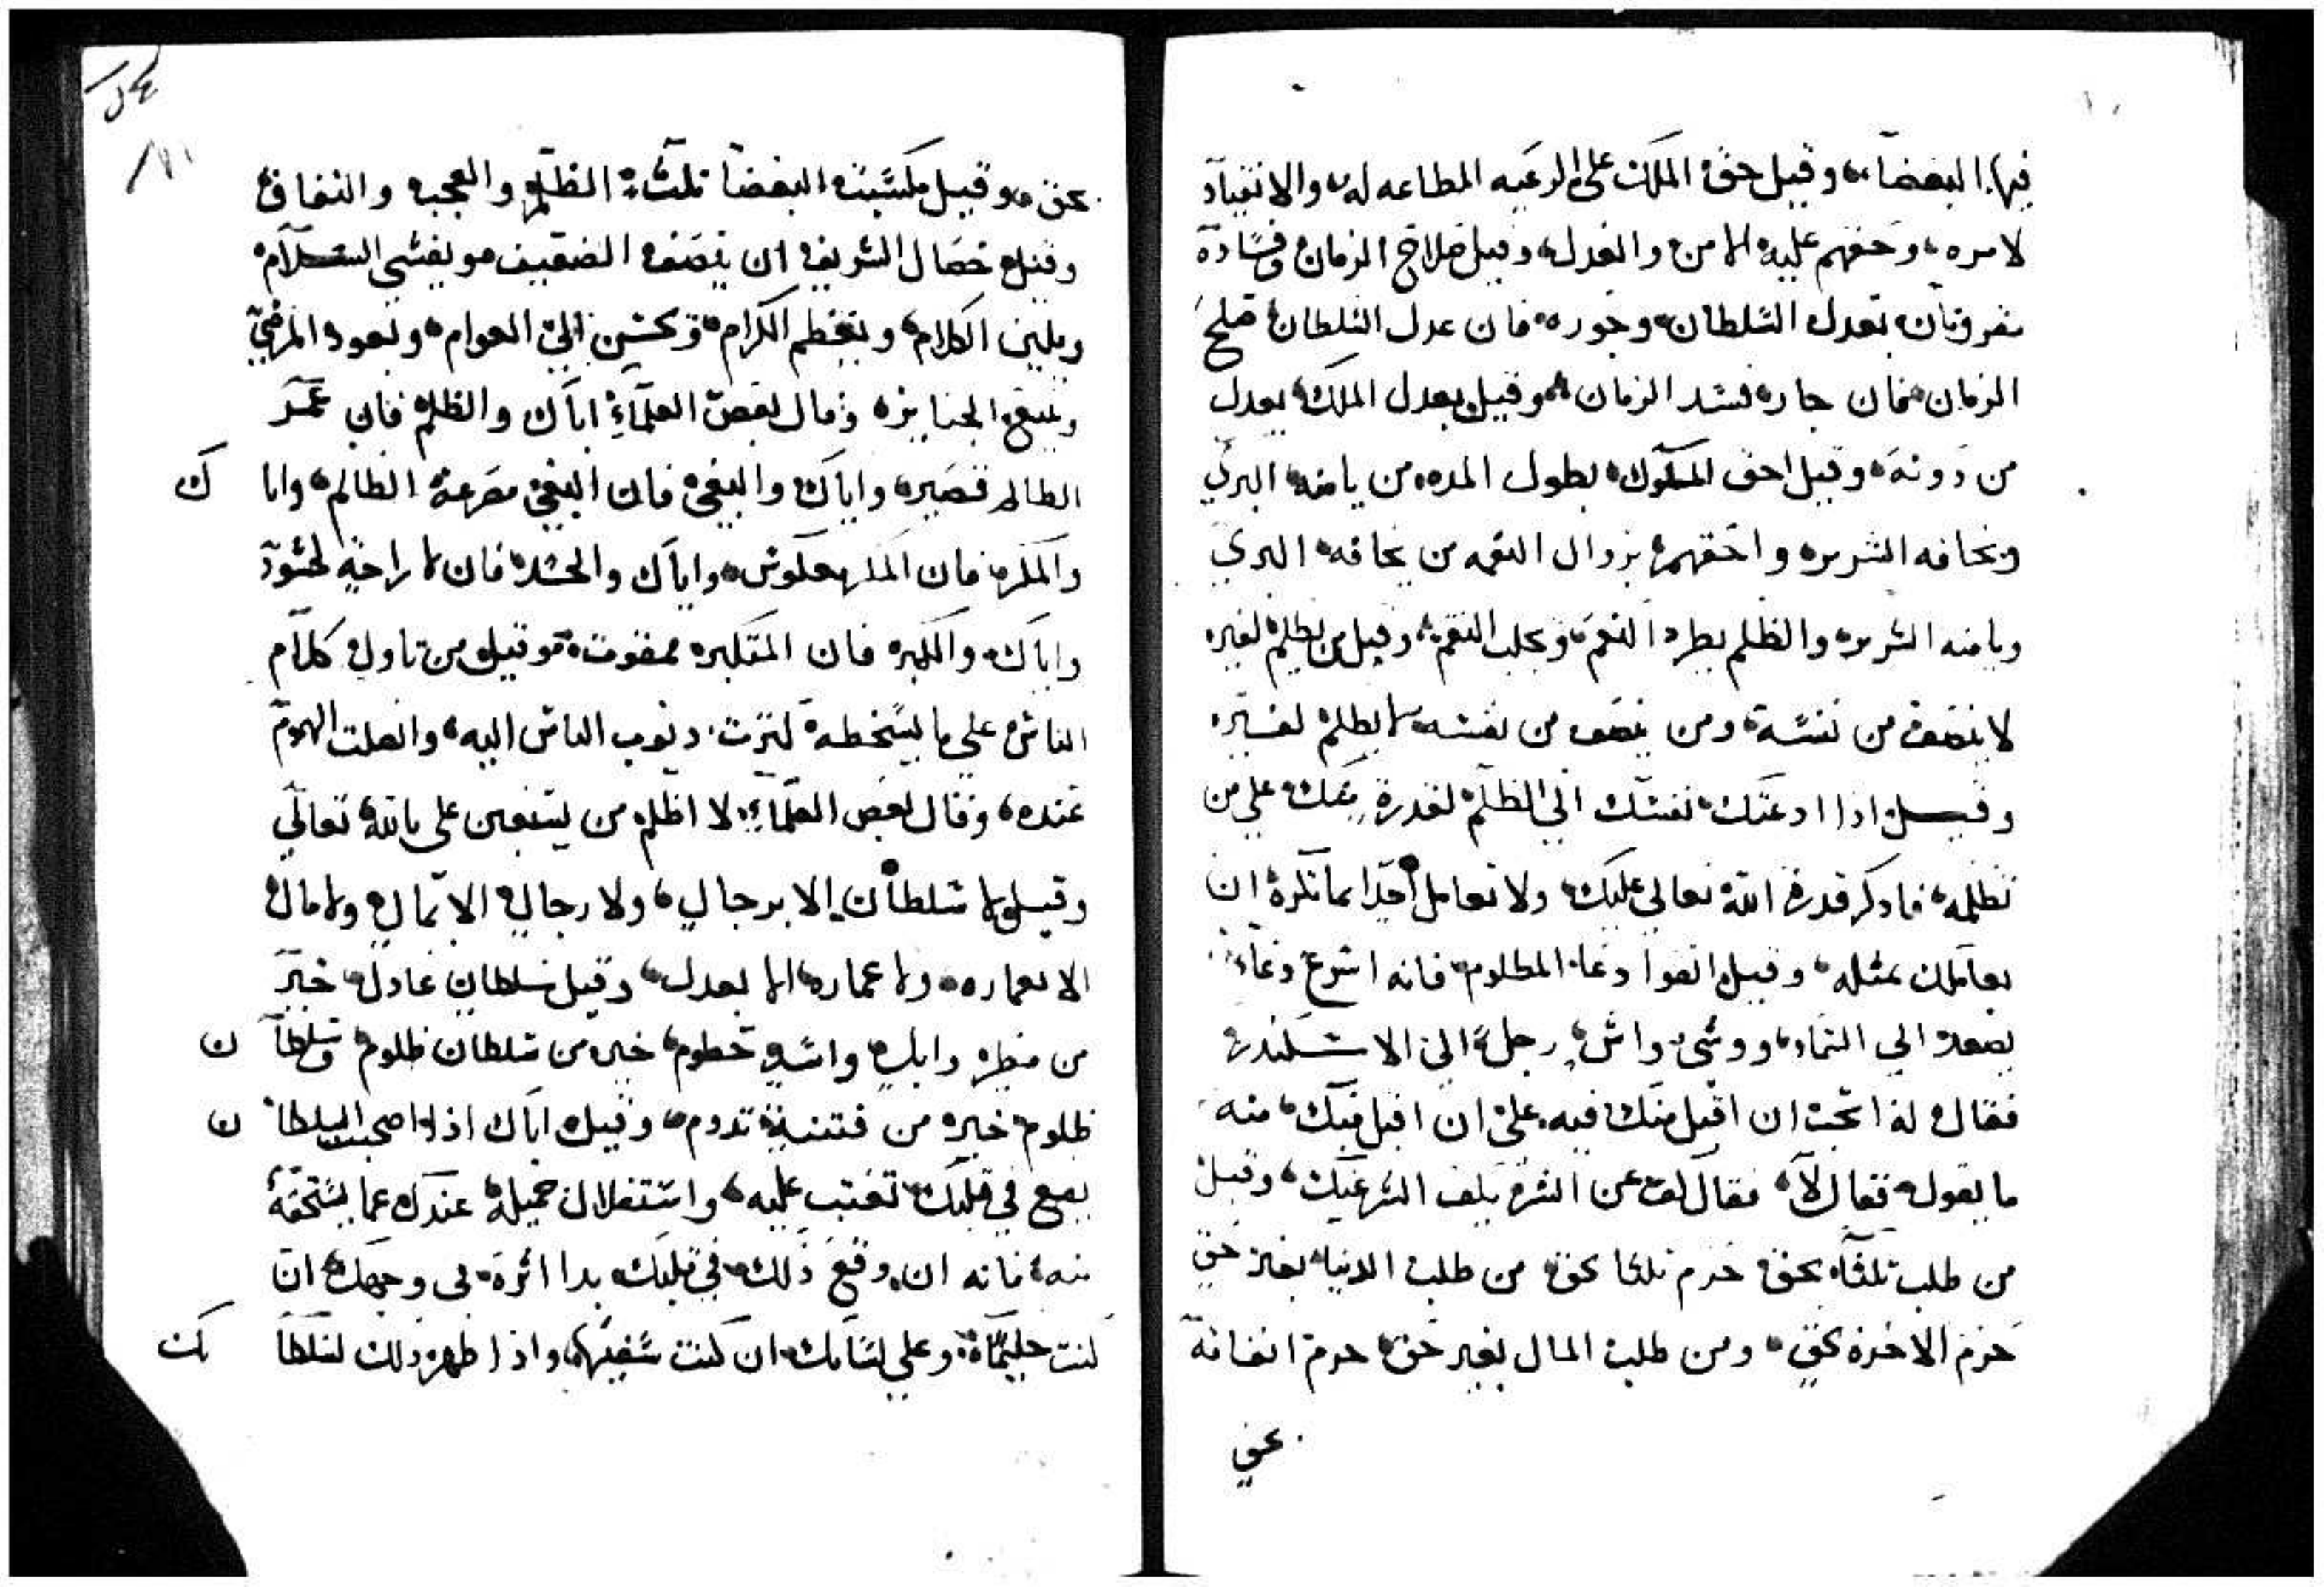 فيها البغضاء وقيل حق الملك على الرعيه المطاعه له والانقياد
لامره وحقهم عليه الامن والعدل وقيل صلاح الزمان وفساده
مقرونان بعدل السلطان وجوره فان عدل السلطان صلح
الزمان فان جار فسد الزمان وقيل بعدل الملك يعدل
من دونه وقيل احق الملوك بطول المده من يامنه البري
ويخافه الشرير واحقهم بزوال النعمه من يخافه البري
ويامنه الشرير والظلم يطرد النعم ويجلب النقم وقيل من يظلم لغيره
لا ينصف من نفسه ومن ينصف من نفسه لا يظلم لغيره
وقيل اذا ادعتك نفسك الى الظلم لقدرة منك على من
تظلمه فاذكر قدرة الله تعالى عليك ولا تعامل احدا بما تكره ان
يعاملك بمثله وقيل اتقوا دعا المظلوم فانه اسرع دعاء
يصعد الى السماء ووشى واش رجل الى الاسكندر
فقال له اتحب ان اقبل منك فيه على ان اقبل فيك منه
ما يقول فقال لا فقال كف عن الشر يكف الشر عنك وقيل
من طلب ثلثا بحق حرم ثلثا بحق من طلب الدنيا بغير حق
حرم الاخره بحق ومن طلب المال بغير حق حرم انفاقه
بحق
بحق وقيل مكسبة البغضا ثلثه الظلم والعجب والنفاق
وقيل خصال الشريف ان ينصف الضعيف ويفشي السلام
ويلين الكلام ويعظم الكرام ويحسن الى العوام ويعود المرضى
ويتبع الجنايز وقال بعض العلماء اياك والظلم فان عمر
الظالم قصير واياك والبغي فان البغي مصرعة الظالم واياك
والمكر فان المكر معكوس واياك والحسد فان لا راحة لحسود
واياك والكبر فان المتكبر ممقوت وقيل من تاول كلام
الناس على ما يسخطه كثرت ذنوب الناس اليه واتصلت الهموم
عنده وقال بعض العلماء لا اظلم من يستعين على بالله تعالى
وقيل لا سلطان الا برجال ولا رجال الا بمال ولا مال
الا بعماره ولا عماره الا بعدل وقيل سلطان عادل خير
من مطر وابل واسد حطوم خير من سلطان ظلوم وسلطان
ظلوم خير من فتنة تدوم وقيل اياك اذا صحبت السلطان
يقع في قلبك تعتب عليه واستقلال جميله عندك عما يستحقه
منه فانه ان وقع ذلك في قلبك بدا اثره في وجهك ان
كنت حليما وعلى لسانك ان كنت سفيها واذا ظهر ذلك لسلطانك